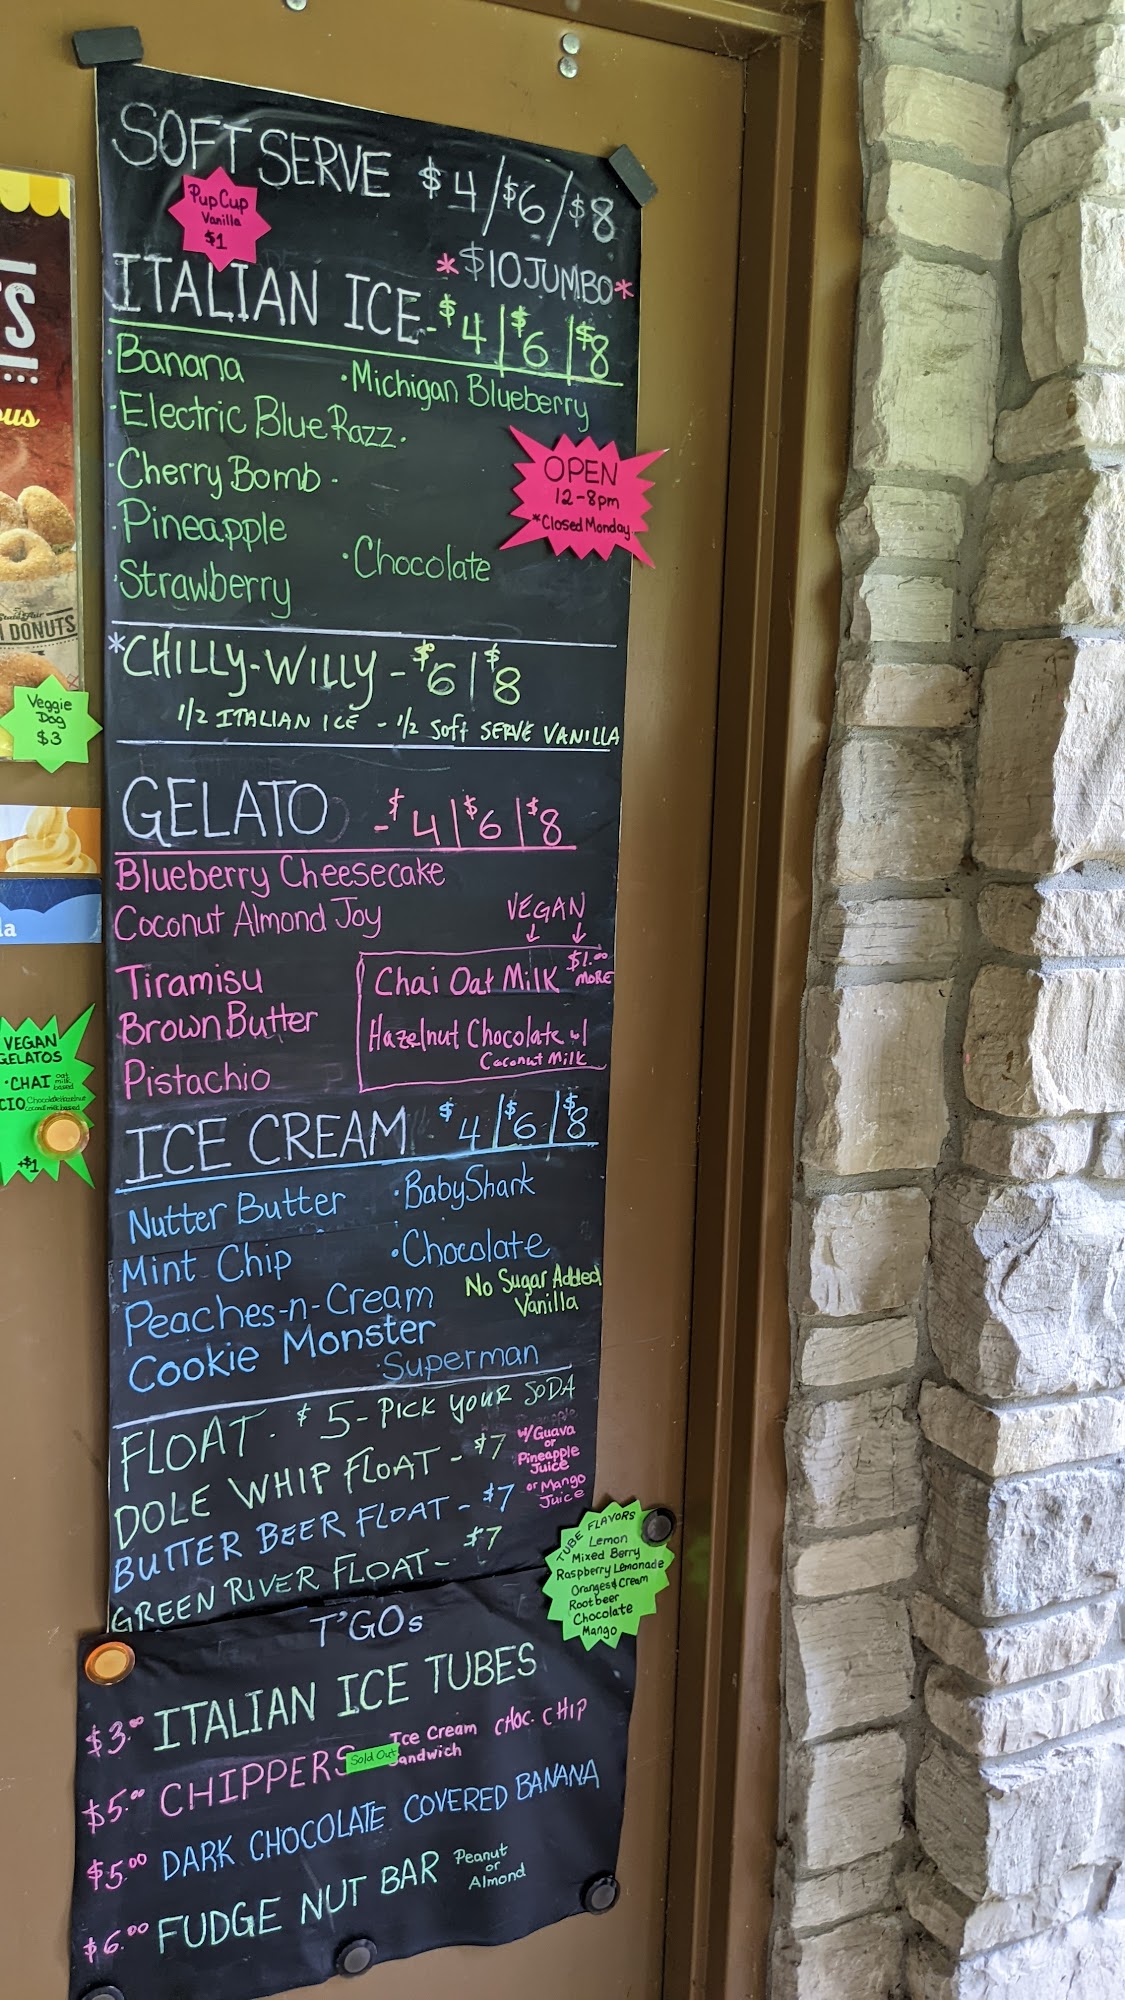 SOFT SERVE $4/$6/$8
Pup Cup
Vanilla
$1
*$10 JUMBO*
ITALIAN ICE - $4|$6|$8
·Banana
·Michigan Blueberry
·Electric Blue Razz·
·Cherry Bomb·
·Pineapple
·Chocolate
·Strawberry
OPEN
12-8pm
*Closed Monday
*CHILLY-WILLY - $6|$8
1/2 ITALIAN ICE - 1/2 Soft SERVE VANILLA
Veggie
Dog
$3
GELATO - $4|$6|$8
Blueberry Cheesecake
Coconut Almond Joy
VEGAN
↓ ↓
Tiramisu
Brown Butter
Pistachio
Chai Oat Milk $1.00 MORE
Hazelnut Chocolate w/
Coconut Milk
VEGAN
GELATOS
·CHAI oat milk based
CIO Chocolate Hazelnut coconut milk based
+$1
ICE CREAM - $4/$6/$8
Nutter Butter
·Baby Shark
Mint Chip
·Chocolate
Peaches-n-Cream
No Sugar Added
Vanilla
Cookie Monster
·Superman
FLOAT - $5 - PICK YOUR SODA
DOLE WHIP FLOAT - $7
w/Guava
or
Pineapple
Juice
or Mango
Juice
BUTTER BEER FLOAT - $7
GREEN RIVER FLOAT - $7
TUBE FLAVORS
Lemon
Mixed Berry
Raspberry Lemonade
Oranges & Cream
Rootbeer
Chocolate
Mango
T'GOs
$3.00 ITALIAN ICE TUBES
$5.00 CHIPPERS Sold Out Ice Cream Sandwich CHOC. CHIP
$5.00 DARK CHOCOLATE COVERED BANANA
$6.00 FUDGE NUT BAR Peanut or Almond
TS
ous
DONUTS
la